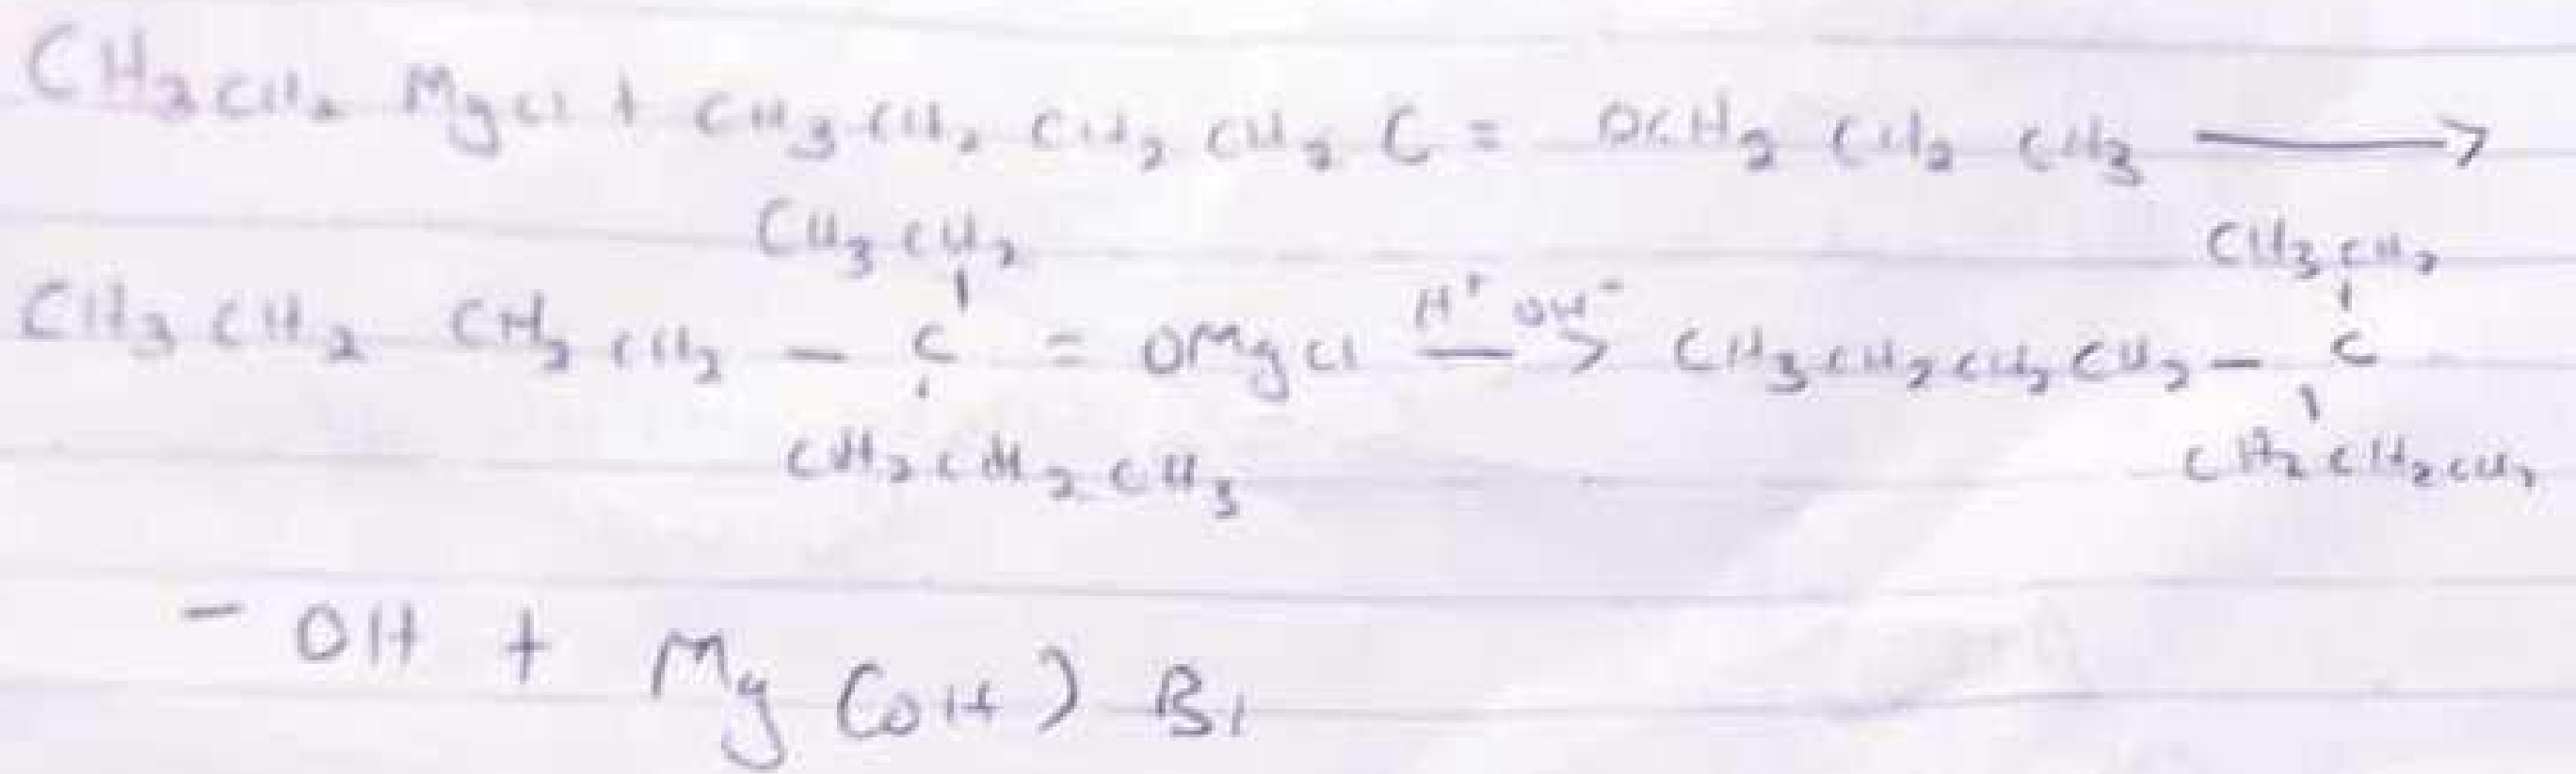 CH3CH2 MgCl + CH3 CH2 CH2 CH2 C = OCH2 CH2 CH3 ⟶
CH3CH2 CH3CH2
CH3 CH2 CH2 CH2 – C = OMgCl H+ OH- –> CH3CH2CH2CH2 – C
CH2CH2CH3 CH2CH2CH3
– OH + Mg (OH) Br